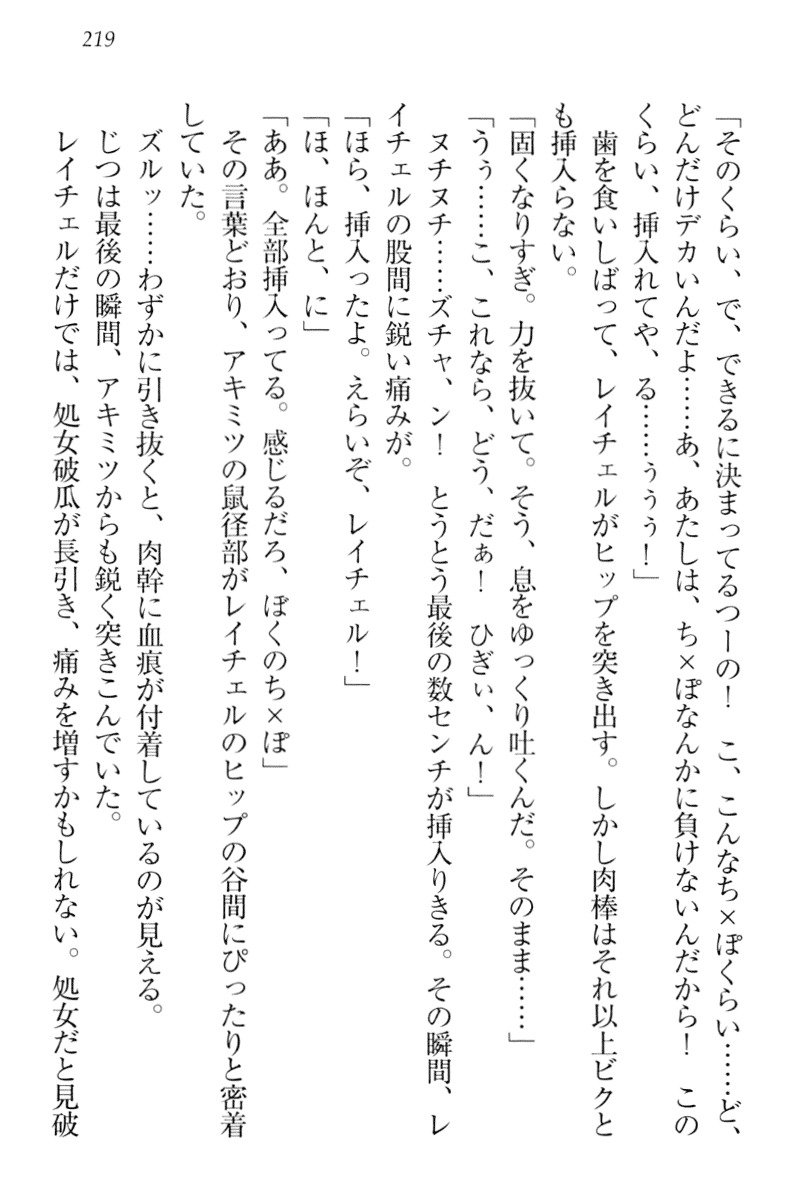 219
「そのくらい、で、できるに決まってるつーの！　こ、こんなち×ぽくらい……ど、
どんだけデカいんだよ……あ、あたしは、ち×ぽなんかに負けないんだから！　この
くらい、挿入れてや、る……ぅぅぅ！」
　歯を食いしばって、レイチェルがヒップを突き出す。しかし肉棒はそれ以上ビクと
も挿入らない。
「固くなりすぎ。力を抜いて。そう、息をゆっくり吐くんだ。そのまま……」
「うぅ……こ、これなら、どう、だぁ！　ひぎぃ、ん！」
　ヌチヌチ……ズチャ、ン！　とうとう最後の数センチが挿入りきる。その瞬間、レ
イチェルの股間に鋭い痛みが。
「ほら、挿入ったよ。えらいぞ、レイチェル！」
「ほ、ほんと、に」
「ああ。全部挿入ってる。感じるだろ、ぼくのち×ぽ」
　その言葉どおり、アキミツの鼠径部がレイチェルのヒップの谷間にぴったりと密着
していた。
　ズルッ……わずかに引き抜くと、肉幹に血痕が付着しているのが見える。
　じつは最後の瞬間、アキミツからも鋭く突きこんでいた。
　レイチェルだけでは、処女破瓜が長引き、痛みを増すかもしれない。処女だと見破